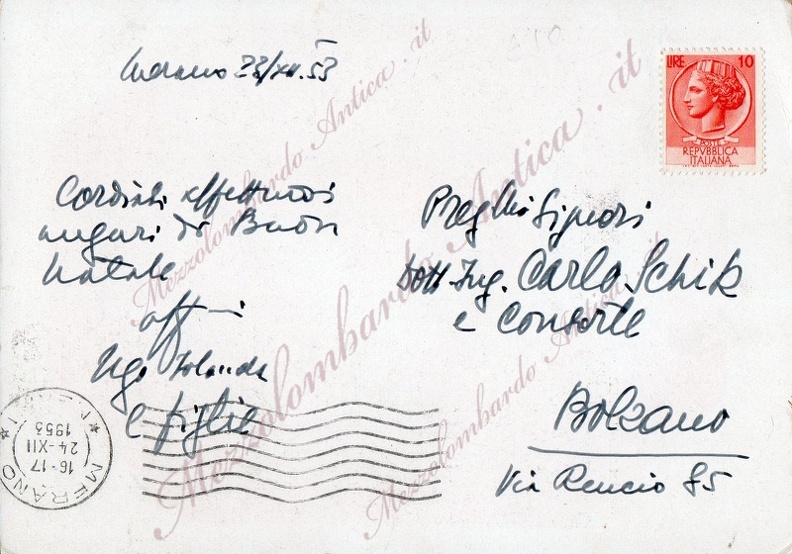 Merano 23/XII.53
Cordiali affettuosi
auguri di Buon
Natale
aff-mi
Ugo Iolanda
e figlie
LIRE 10
POSTE
REPVBBLICA
ITALIANA
Preg/mi Signori
Dott. Ing. Carlo Schik
e Consorte
Bolzano
Via Rencio 85
MERANO
16-17
24-XII
1953
Mezzolombardo Antica.it
Mezzolombardo Antica.it
Mezzolombardo Antica.it